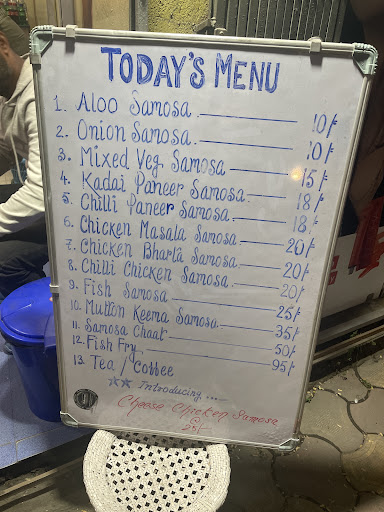 TODAY'S MENU
1. Aloo Samosa 10/-
2. Onion Samosa 10/-
3. Mixed Veg. Samosa 15/-
4. Kadai Paneer Samosa 18/-
5. Chilli Paneer Samosa 18/-
6. Chicken Masala Samosa 20/-
7. Chicken Bharta Samosa 20/-
8. Chilli Chicken Samosa 20/-
9. Fish Samosa 25/-
10. Mutton Keema Samosa 35/-
11. Samosa Chaat 50/-
12. Fish Fry 95/-
13. Tea / Coffee
Introducing....
Cheese Chicken Samosa
25/-